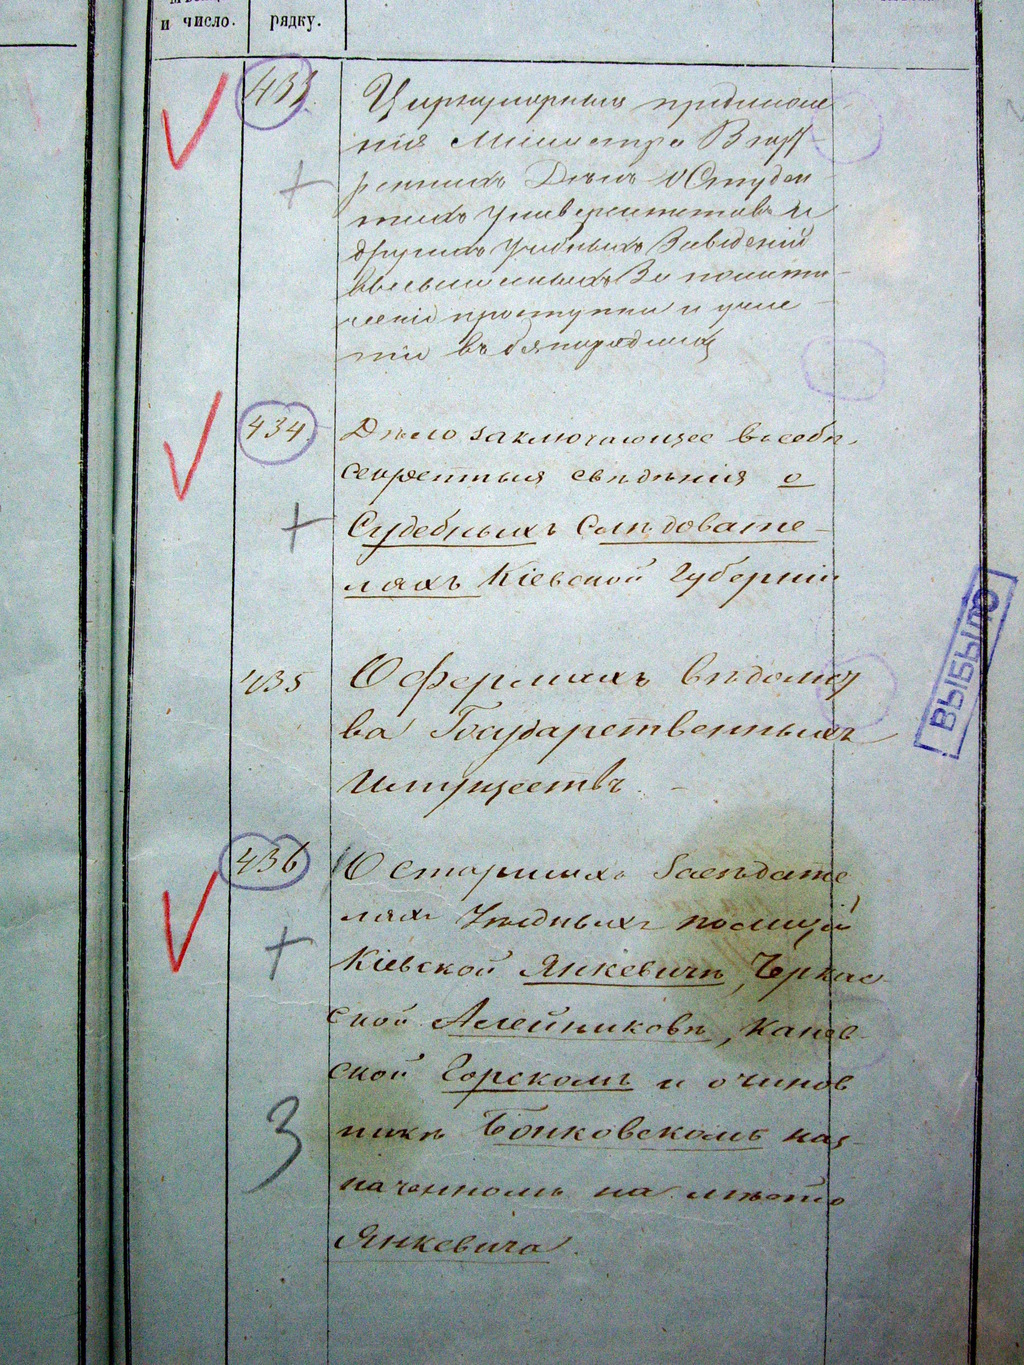 и число.
рядку.
433.
Циркулярныя предписа
нія Министра Внут
реннихъ Дѣлъ о Студен
тахъ Университетовъ и
другихъ Учебныхъ Заведеній
За полити
ческіе проступки и учас
тіе въ безпорядкахъ
434.
Дѣло заключающее въ себѣ
секретныя свѣдѣнія о
Судебныхъ Слѣдовате-
ляхъ Кіевской Губерніи
435
О фермахъ вѣдомст
ва Государственныхъ
Имуществъ. -
ВЫБЫЛО
436
О Старшихъ Засѣдате
ляхъ Уѣздныхъ полицій
Кіевской Янкевичѣ, Черкас-
ской Алейниковѣ, Канев-
ской Горскомъ и о чинов
никѣ Бонковскомъ наз-
наченномъ на мѣсто
Янкевича.
3